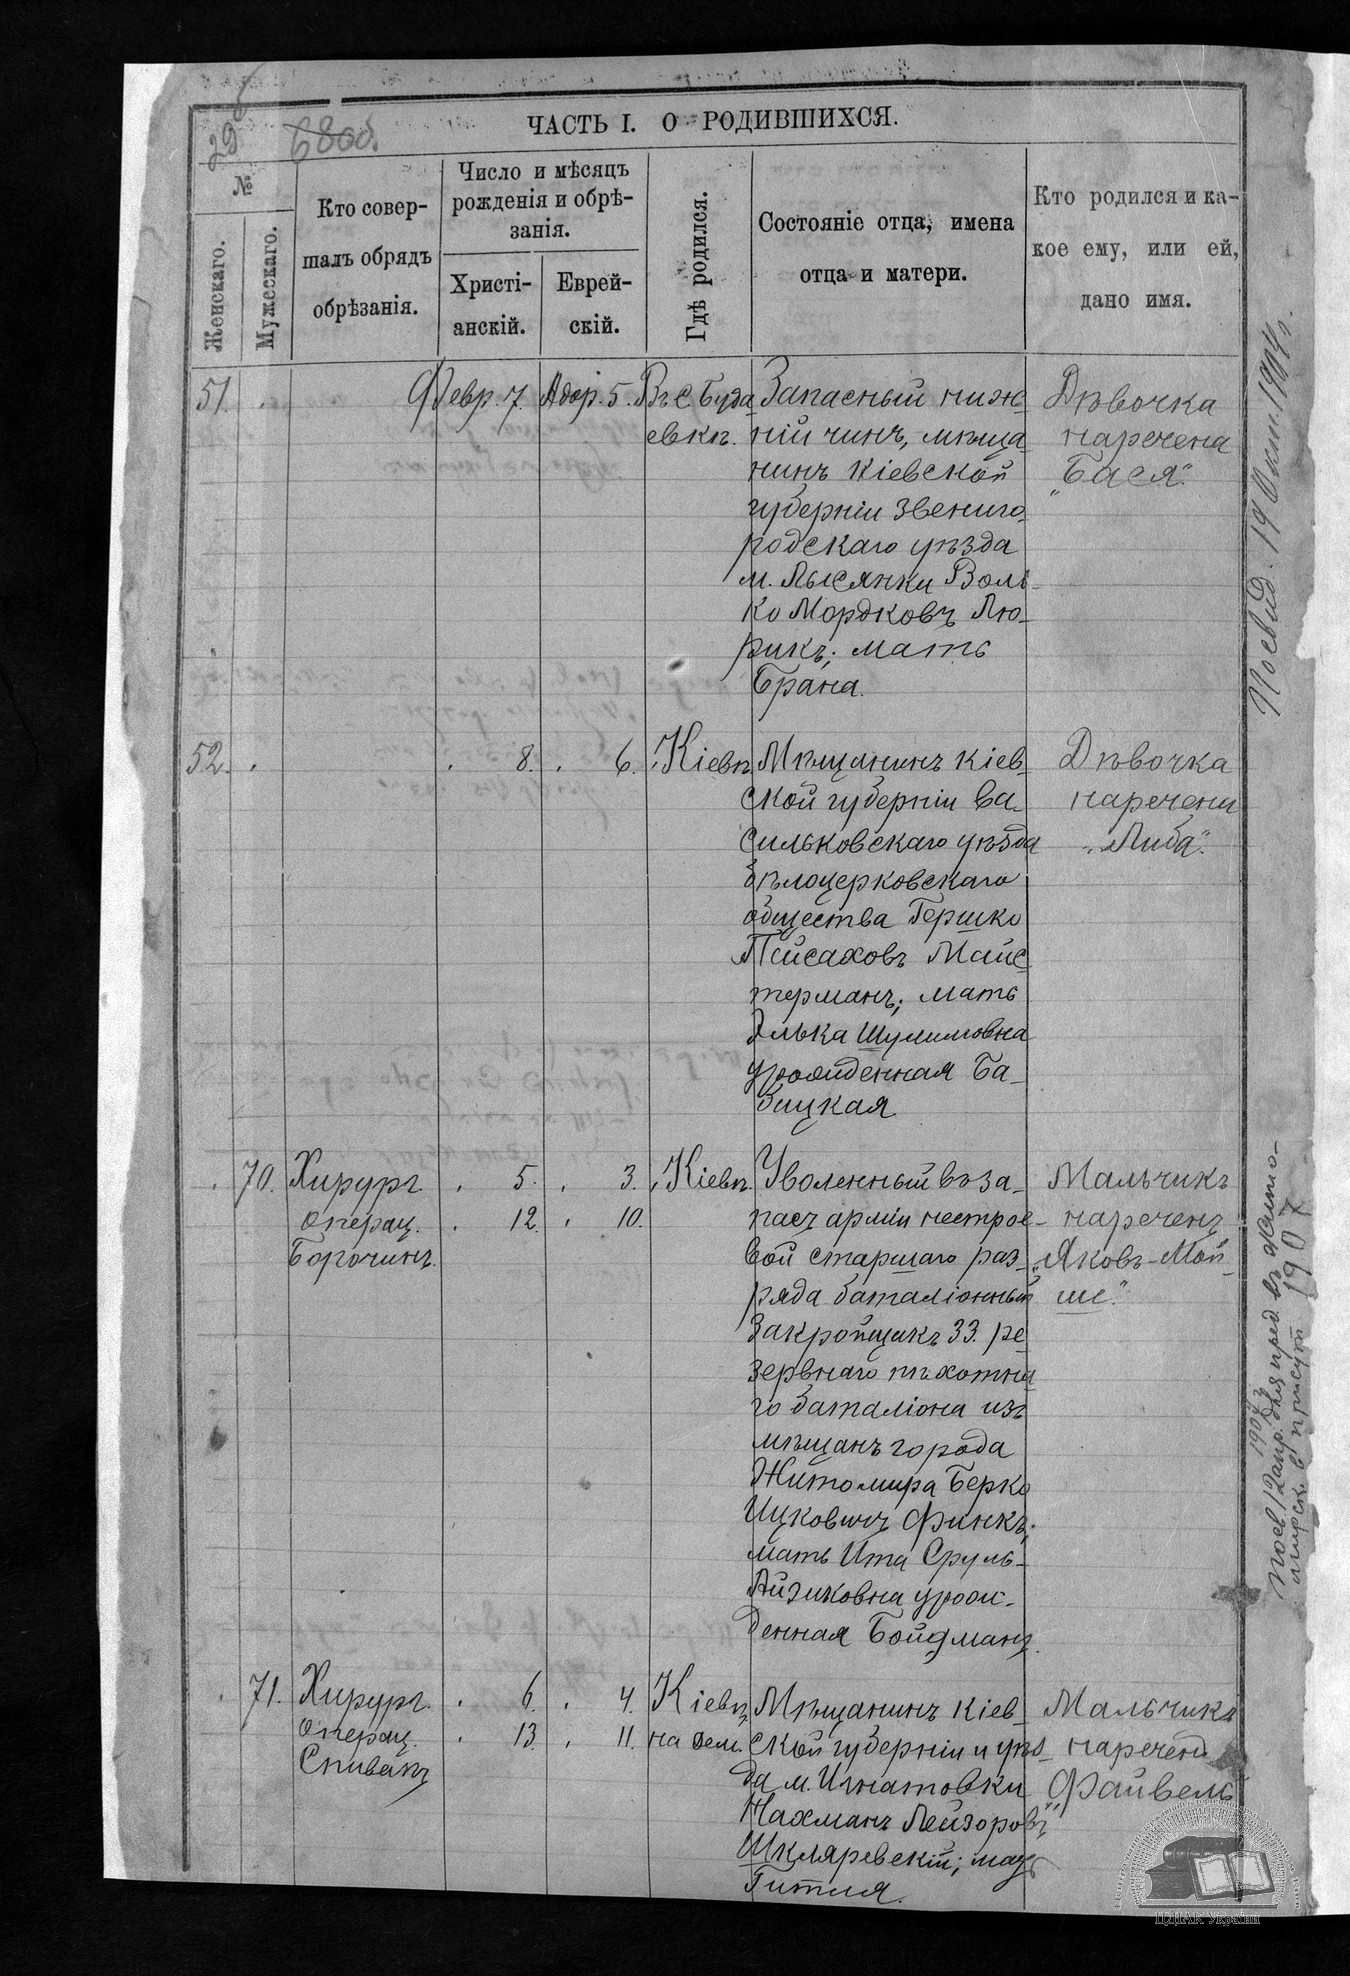 29
680об.
ЧАСТЬ I. О РОДИВШИХСЯ.
№
Женскаго.
Мужескаго.
Кто совер-
шалъ обрядъ
обрѣзанія.
Число и мѣсяцъ
рожденія и обрѣ-
занія.
Христі-
анскій.
Еврей-
скій.
Гдѣ родился.
Состояніе отца, имена
отца и матери.
Кто родился и ка-
кое ему, или ей,
дано имя.
51.
Февр. 7.
Адар. 5.
Въ с. Буда
евкѣ.
Запасный ниж-
ній чинъ, мѣща
нинъ Кіевской
губерніи Звениго-
родскаго уѣзда
м. Лысянки Воль-
ко Мордковъ Лю-
рикъ; мать
Брана.
Дѣвочка
наречена
„Бася“.
52.
8.
6.
Кіевъ
Мѣщанинъ Кіев-
ской губерніи Ва-
сильковскаго уѣзда
бѣлоцерковскаго
общества Гершко
Пейсаховъ Майс-
терманъ; мать
Элька Шулимовна
урожденная Ба-
бицкая
Дѣвочка
наречена
„Либа“.
70.
Хирург.
операц.
Борочинъ.
5.
12.
3.
10.
Кіевъ.
Уволенный въ за-
пасъ арміи нестрое-
вой старшаго раз-
ряда баталіонный
закройщикъ 33. ре-
зервнаго пѣхотна
го баталіона изъ
мѣщанъ города
Житомира Берко
Ицковичъ Финкъ;
мать Ита Сруль-
Айзиковна урож-
денная Бойдманъ.
Мальчикъ
нареченъ
„Яковъ-Мой-
ше“.
71.
Хирург.
операц.
Спивакъ
6.
13.
4.
11.
Кіевъ,
на Дем.
Мѣщанинъ Кіев-
ской губерніи и уѣз-
да м. Игнатовки
Нахманъ Лейзоровъ
Шкляревскій; мать
Гитля.
Мальчикъ
нареченъ
„Файвель“
19 Окт. 1904 г.
1907 г.
12 апр. для пред. въ Жито-
мирск. в. присут 1907
ЦДІАК України